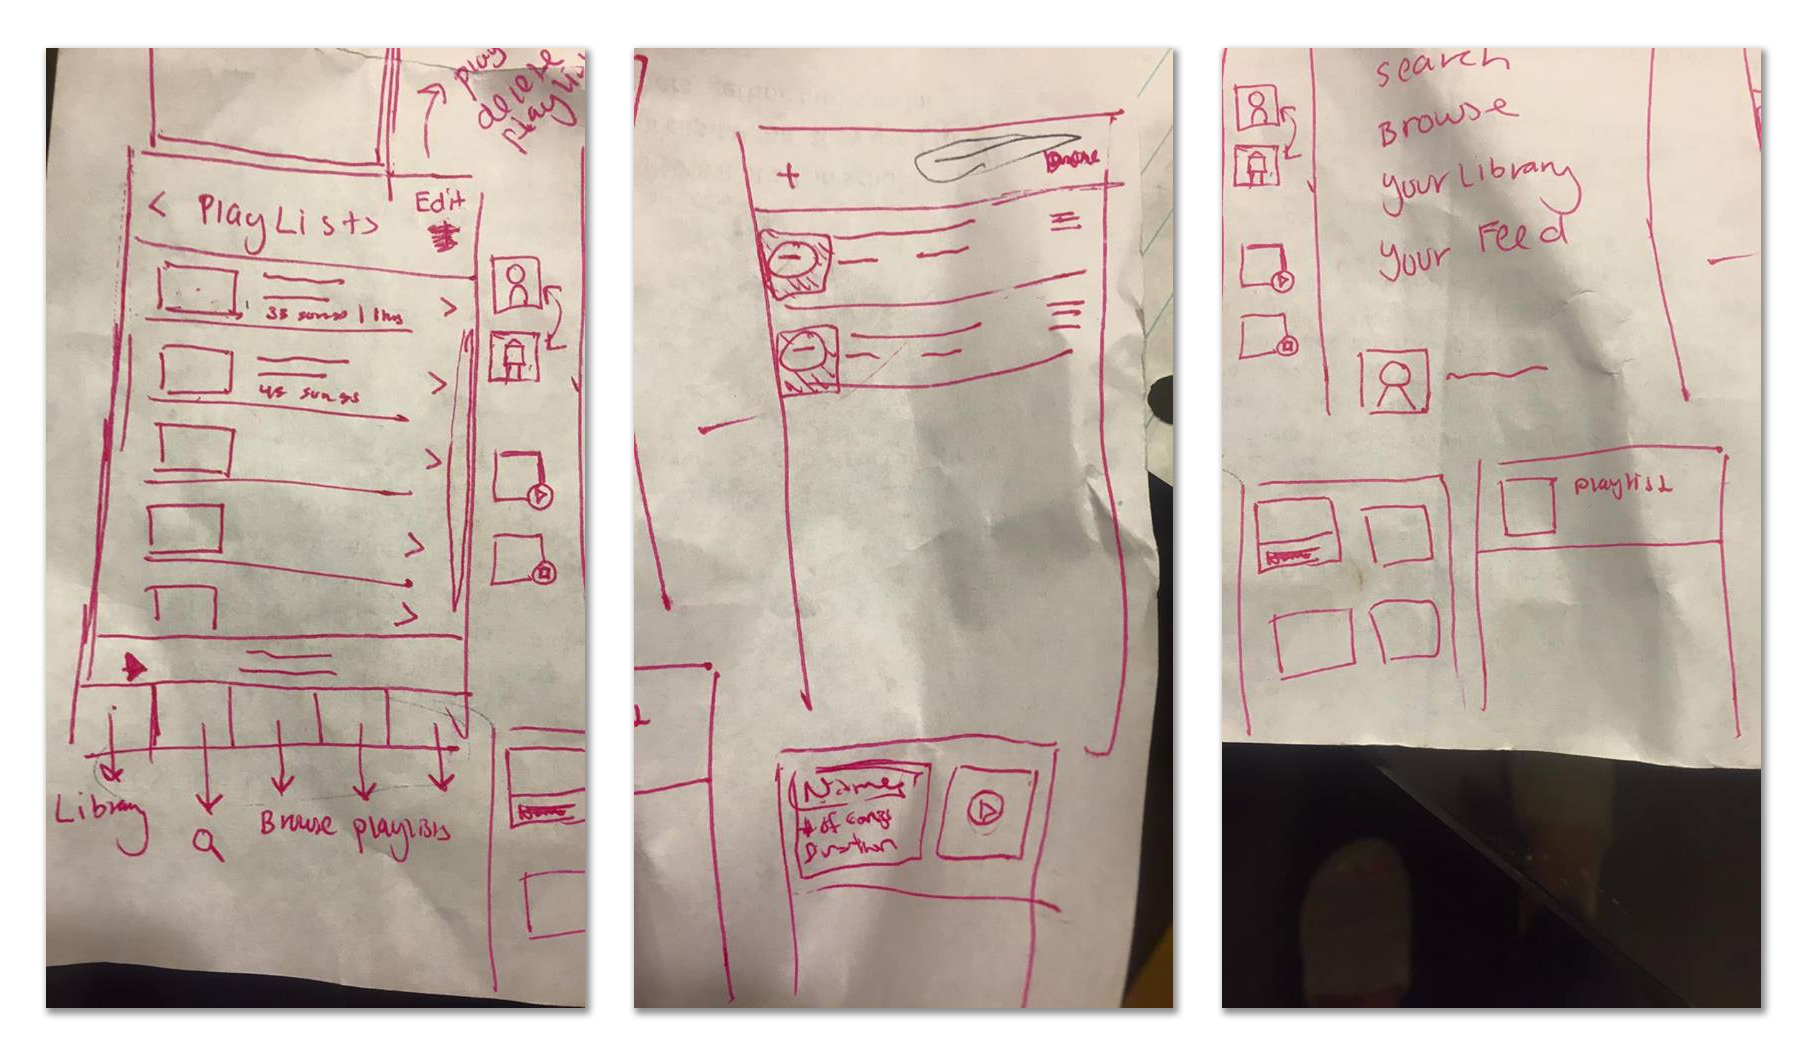 play
delete
playlist
< PlayLists
Edit
35 songs | 1hrs
45 songs
Library
Browse
playlists
+
Names
# of songs
Duration
search
Browse
your Library
your Feed
playlist